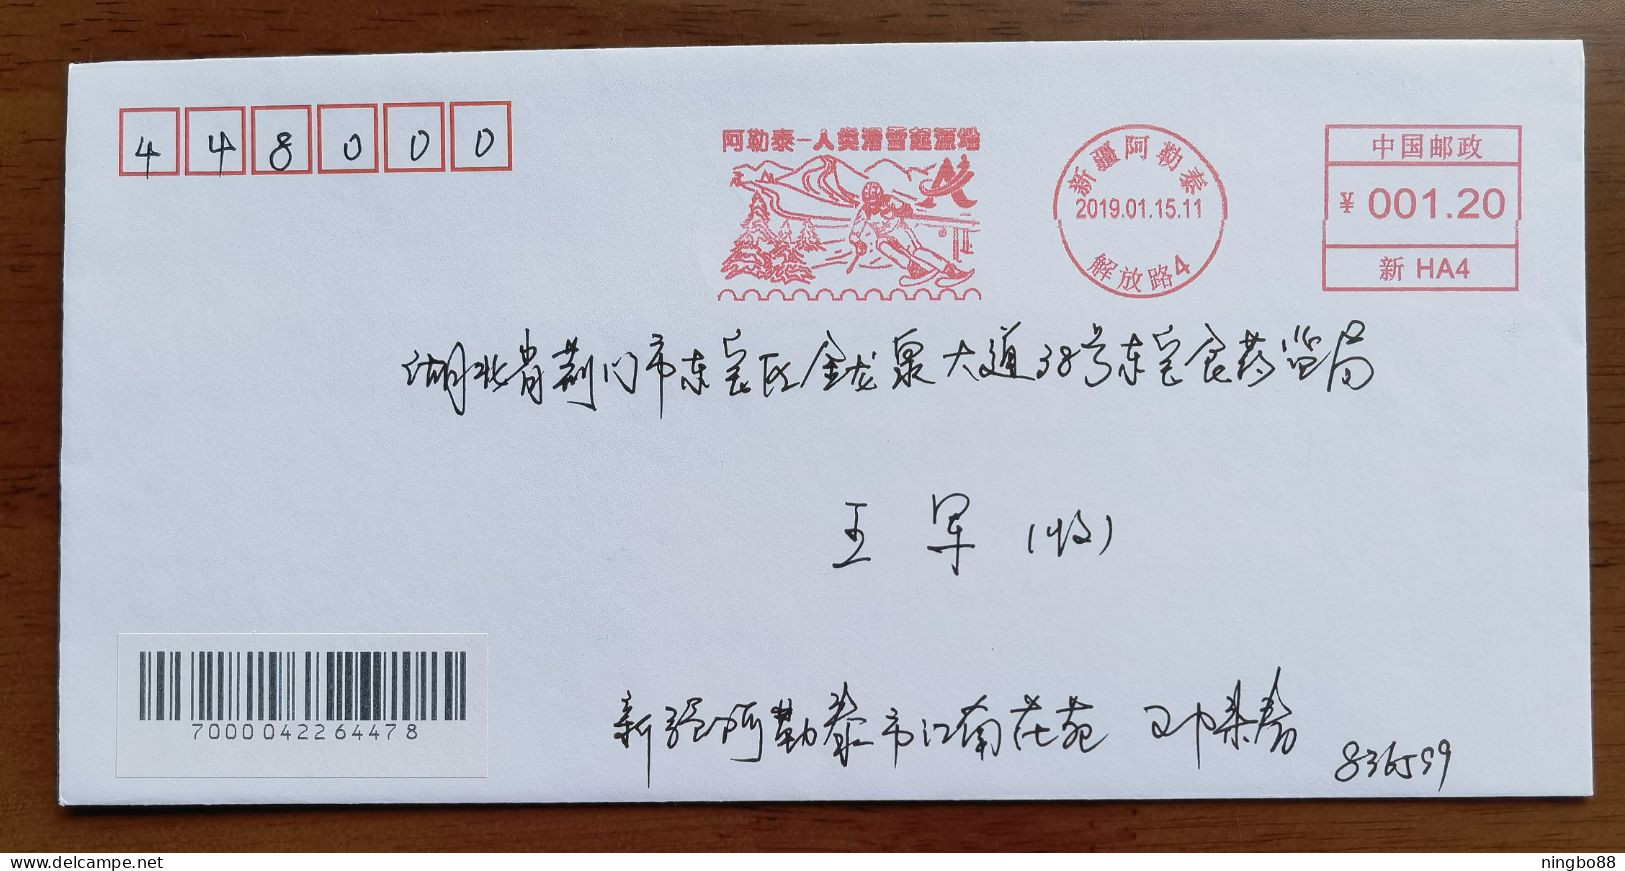 448000
阿勒泰-人类滑雪起源地
新疆阿勒泰
2019.01.15.11
解放路4
中国邮政
¥ 001.20
新 HA4
湖北省荆门市东宝区金龙泉大道38号东宝食药监局
王军(收)
7000042264478
新疆阿勒泰市江南花苑
delcampe.net
ningbo88